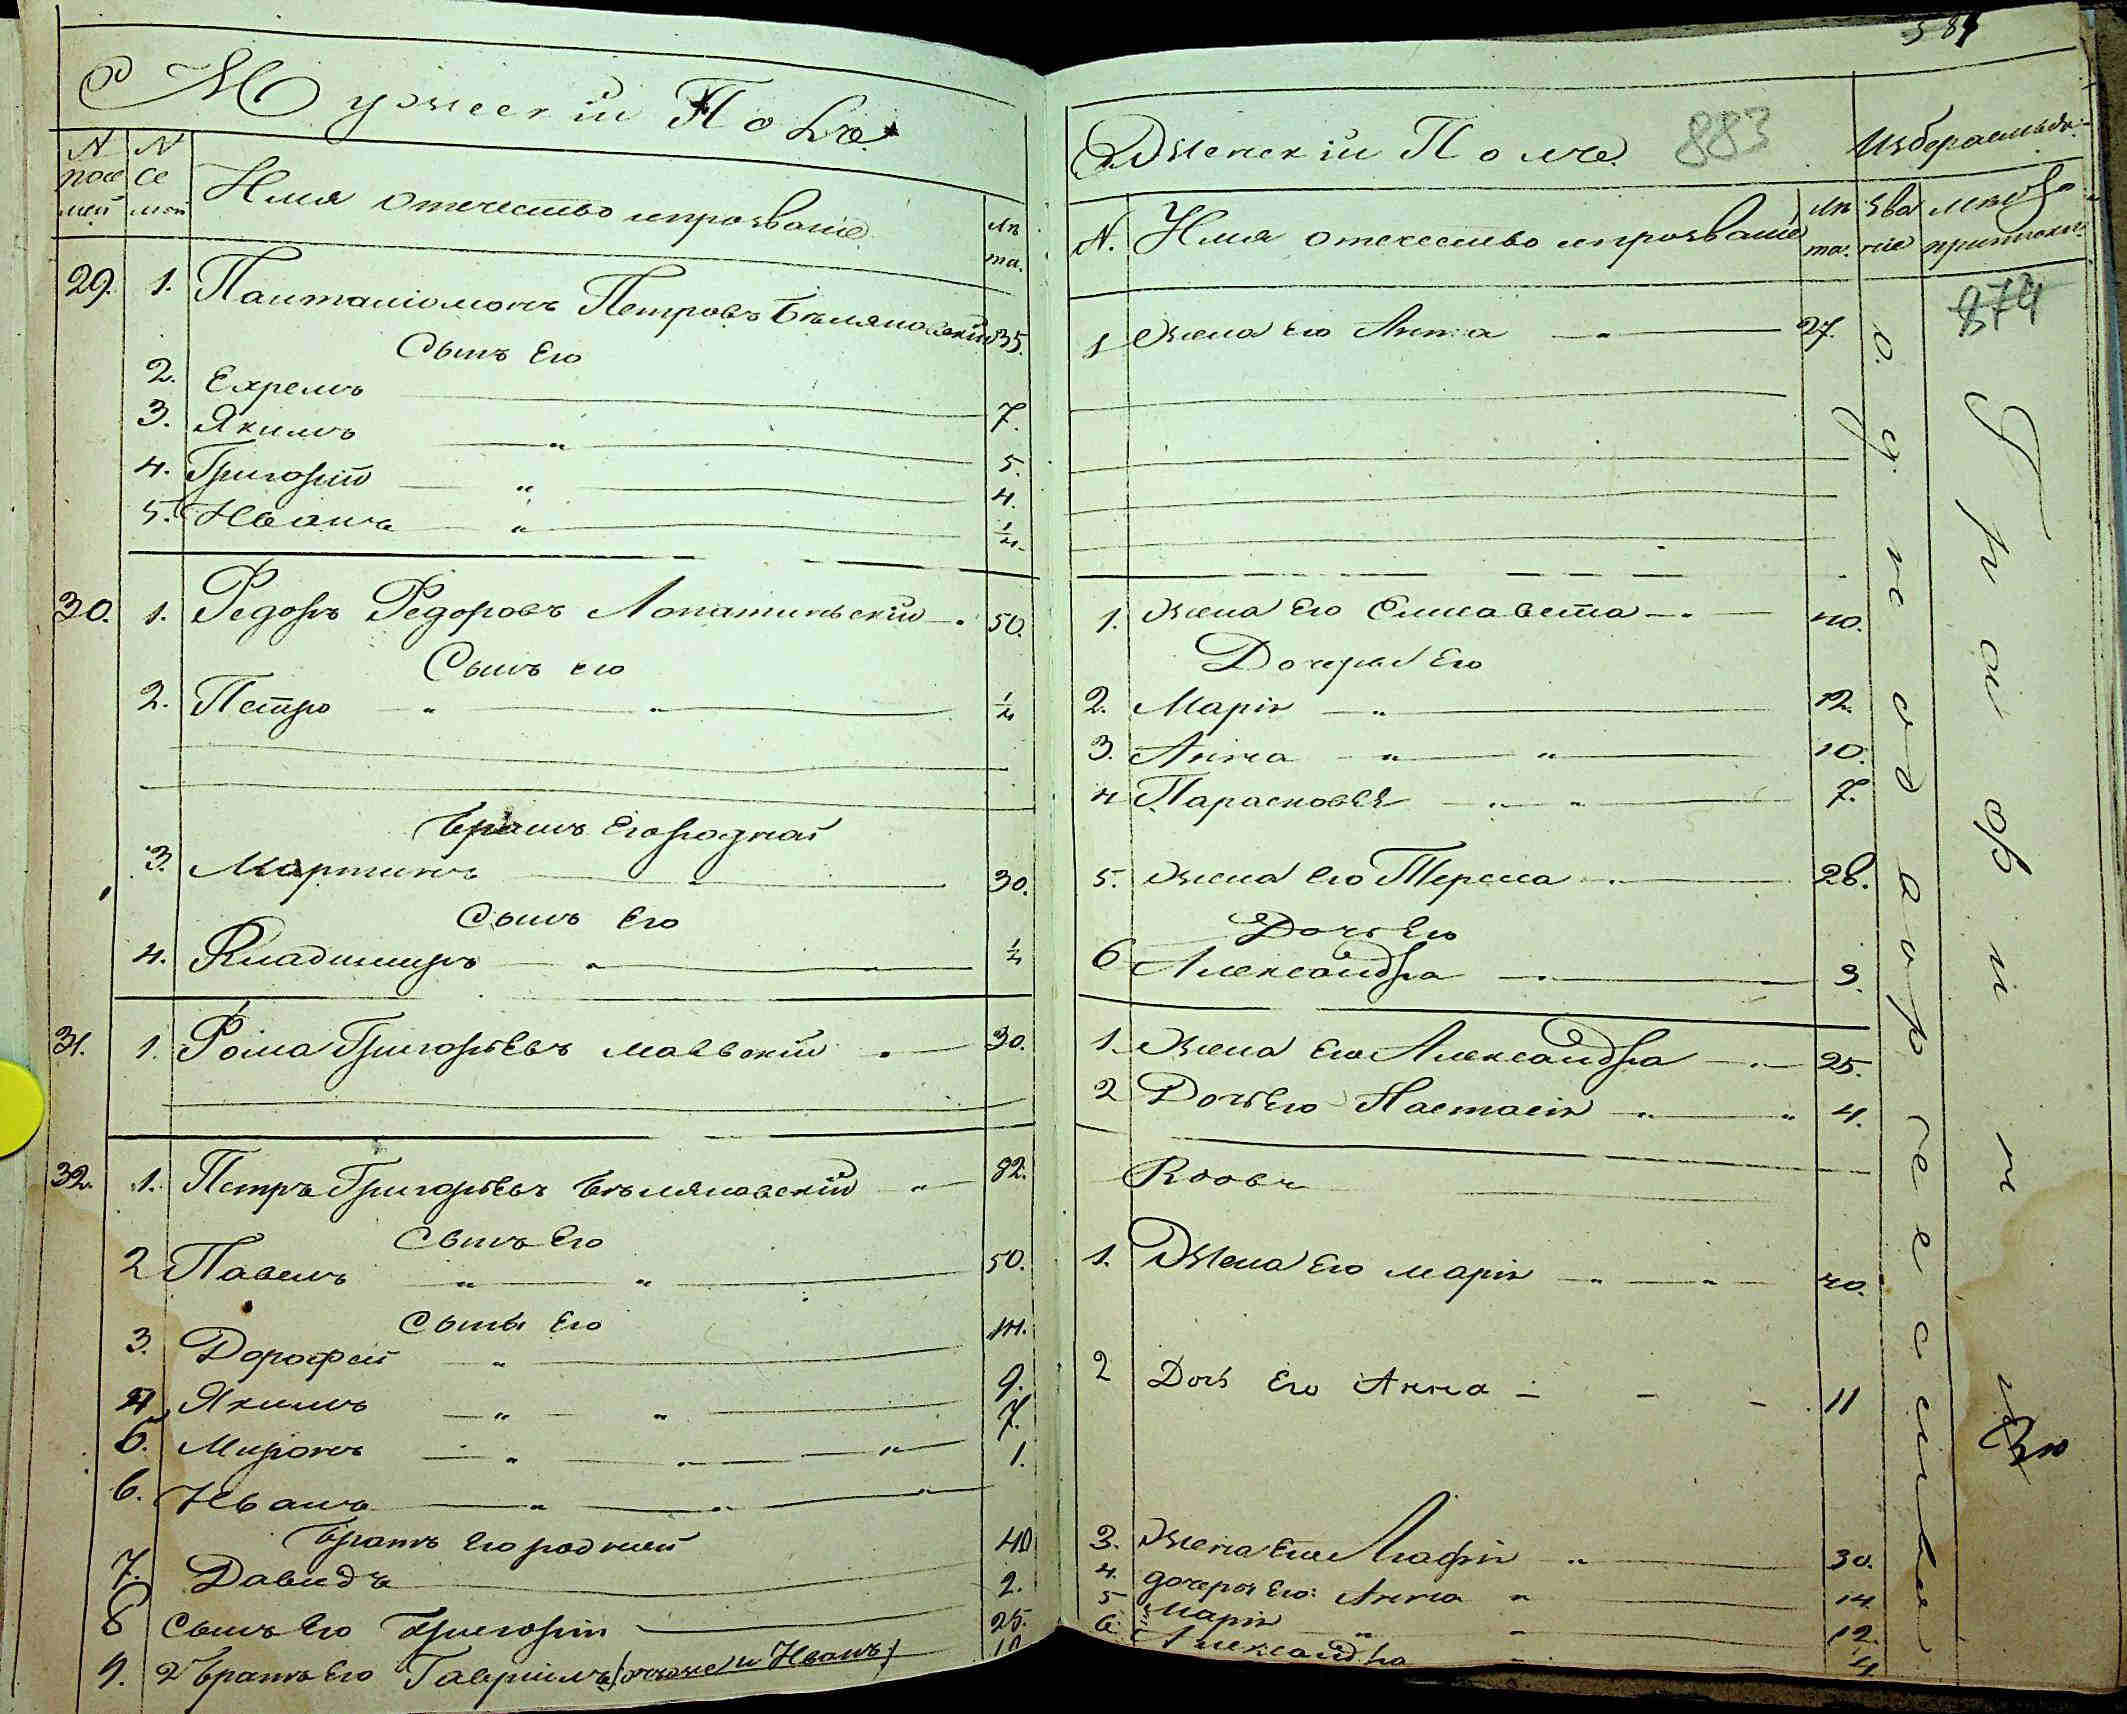 Мужескій Полъ
N посе мей
N се мей
Имя отечество ипрозваніе
лѣ та.
29. 1. Панталіомонъ Петровъ Бѣляновскій 35.
Сынъ Его
2. Ехремъ 7.
3. Якимъ „ 5.
4. Григорій „ 4.
5. Иванъ „ 1/2
30. 1. Федоръ Федоровъ Лопатиньскій 50.
Сынъ его
2. Петро „ „ 1/2
Братъ Егородной
3. Мартинъ „ 30.
Сынъ Его
4. Владимиръ „ 1/2
31. 1. Рома Григорьевъ 30.
32. 1. Петръ Григорьевъ Бѣляновскій „ 82.
Сынъ Его
2 Павелъ „ „ 50.
Сыны Его
3. Дорофей „ 14.
4 Якимъ „ „ 9.
5. Миронъ „ „ „ 7.
6. Иванъ „ „ „ 1.
Братъ Его родней
7. Давидъ 40
8 Сынъ Его Григорій 2.
9. 2 Братъ Его Гавріилъ и Иванъ 25.
384
Женскій Полъ. 883
Избераемыхъ
N. Имя отечество ипрозваніе
лѣ та.
зва ніе
приписки
874
1 Жена его Анна „ 27.
1. Жена Его Елисавета 40.
Дочеры Его
2. Марія „ 12.
3. Анна „ „ 10.
4 Парасковья „ „ 7.
5. Жена Его Тереса 28.
Дочь Его
6 Александра 3.
1. Жена Его Александра 25.
2 Дочь Его Настасія „ „ 4.
Вдовъ
1. Жена Его марія „ „ 40.
2 Дочь Его Анна 11
3. Жена Его Агафія „ 30.
4. дочеры Его: Анна „ 14
5 Марія „ „ 12.
6. Александра „ 4
однодворческие